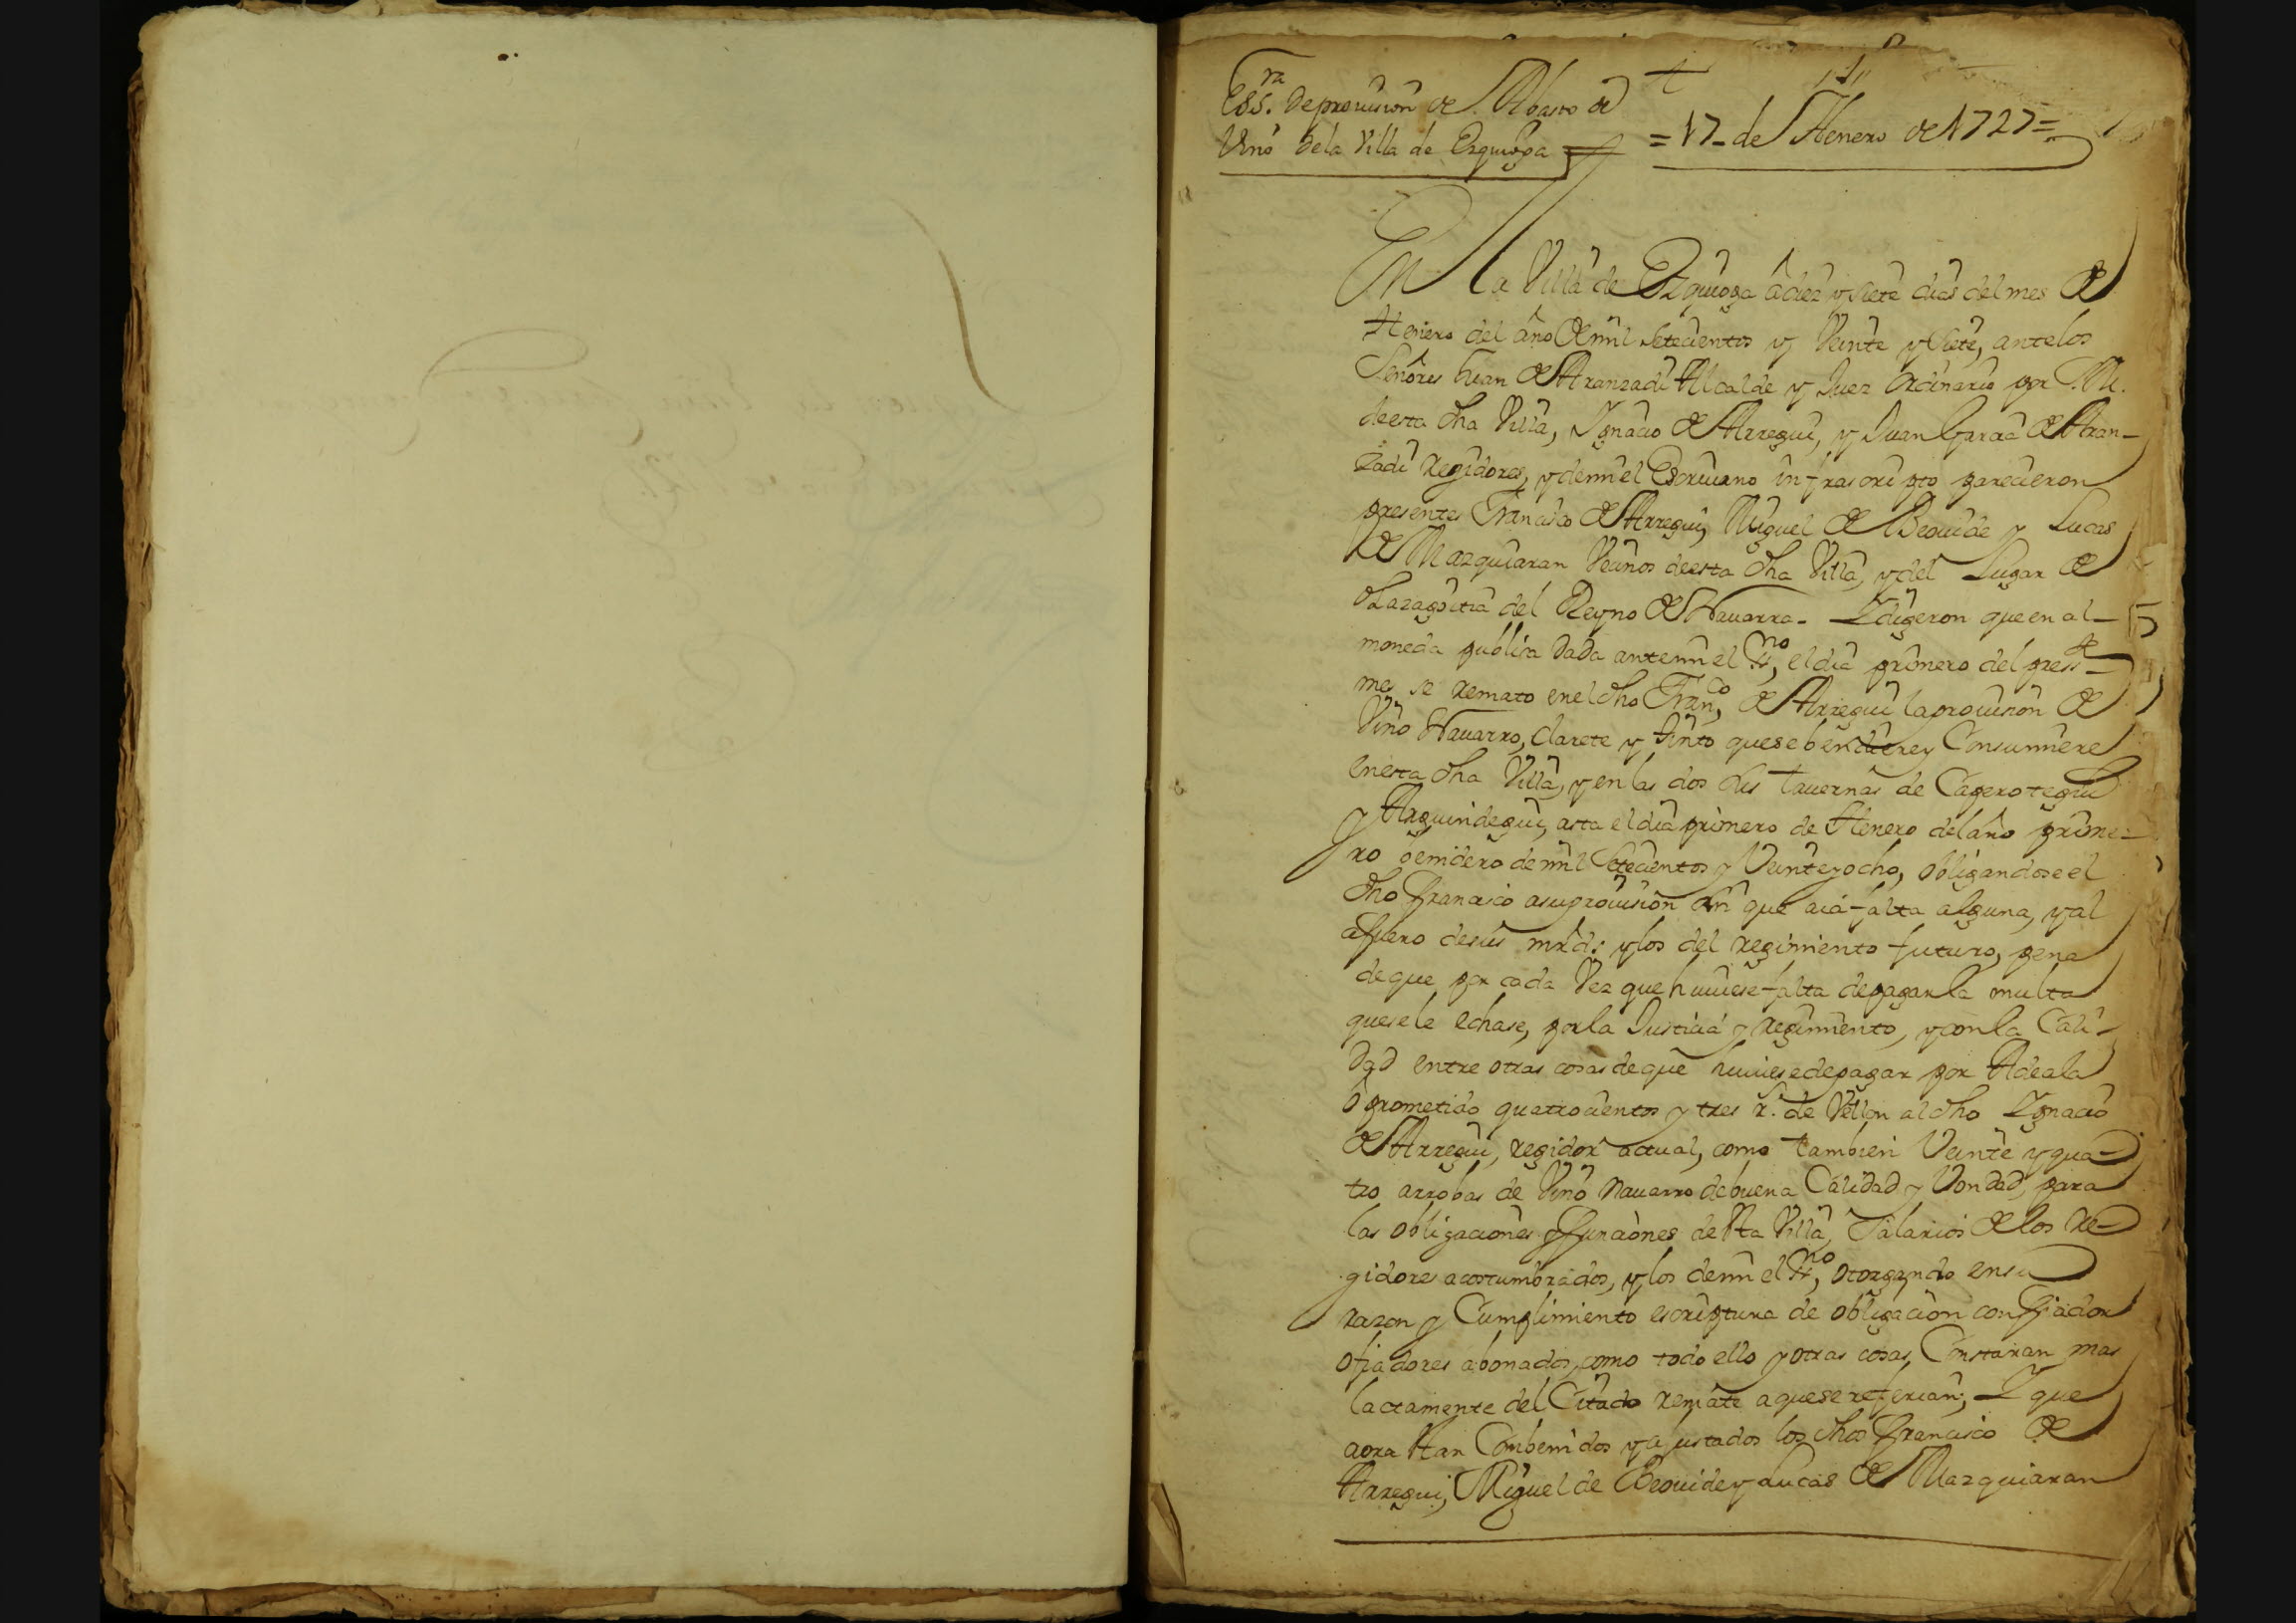 Ess.ra de provision de Abasto de
Vino de la Villa de Ezquioga
= 17 de Henero de 1727 =
En la Villa de Ezquioga a diez y siete dias del mes de
Henero del año de mil setecientos y Veinte y siete, ante los
Señores Juan de Aranzadi Alcalde y Juez ordinario por S.M.
de esta dha Villa, Ignacio de Arregui, y Juan Garcia de Aran-
zadi Regidores, y de mi el Escriuano infrascripto parecieron
presentes Francisco de Arregui, Miguel de Beguide y Lucas
de Mazquiaran Vecinos de esta dha Villa, y del Lugar de
Olazagoitia del Reyno de Nauarra. Y digeron que en al-
moneda publica dada ante mi el ss.no, el dia primero del press.te
mes se Remato en el dho Fran.co de Arregui la provision de
Vino Nauarro, clarete y tinto que se bendiere y Consumiere
en esta dha Villa, y en las dos sus tauernas de Cagerotegui
y Arguindegui, asta el dia primero de Henero del año prime-
ro benidero de mil Setecientos y Veinte y ocho, obligandose el
dho Francisco a su prouision sin que aia falta alguna, y al
afuero de sus mrds. y los del regimiento futuro, pena
de que por cada Vez que huuiese falta de pagar la multa
que se le echase, por la Justicia y regimiento, y con la Cali-
dad entre otras cosas de que huuiese de pagar por Adeala
o prometido quatrocientos y tres r.s de Vellon al dho Ignacio
de Arregui, regidor actual, como tambien Veinte y qua-
tro arrobas de Vino nauarro de buena Calidad y Vondad, para
las obligaciones y funciones de sta Villa, Salarios de los Re-
gidores acostumbrados, y los de mi el ss.no, otorgando en su
razon y Cumplimiento escriptura de obligacion con fiador
o fiadores abonados, como todo ello y otras cosas, Constaran mas
lactamente del Citado remate a que se referian; Y que
aora Han Combenidos y ajustados los dhos Francisco de
Arregui, Miguel de Beguide y Lucas de Mazquiaran